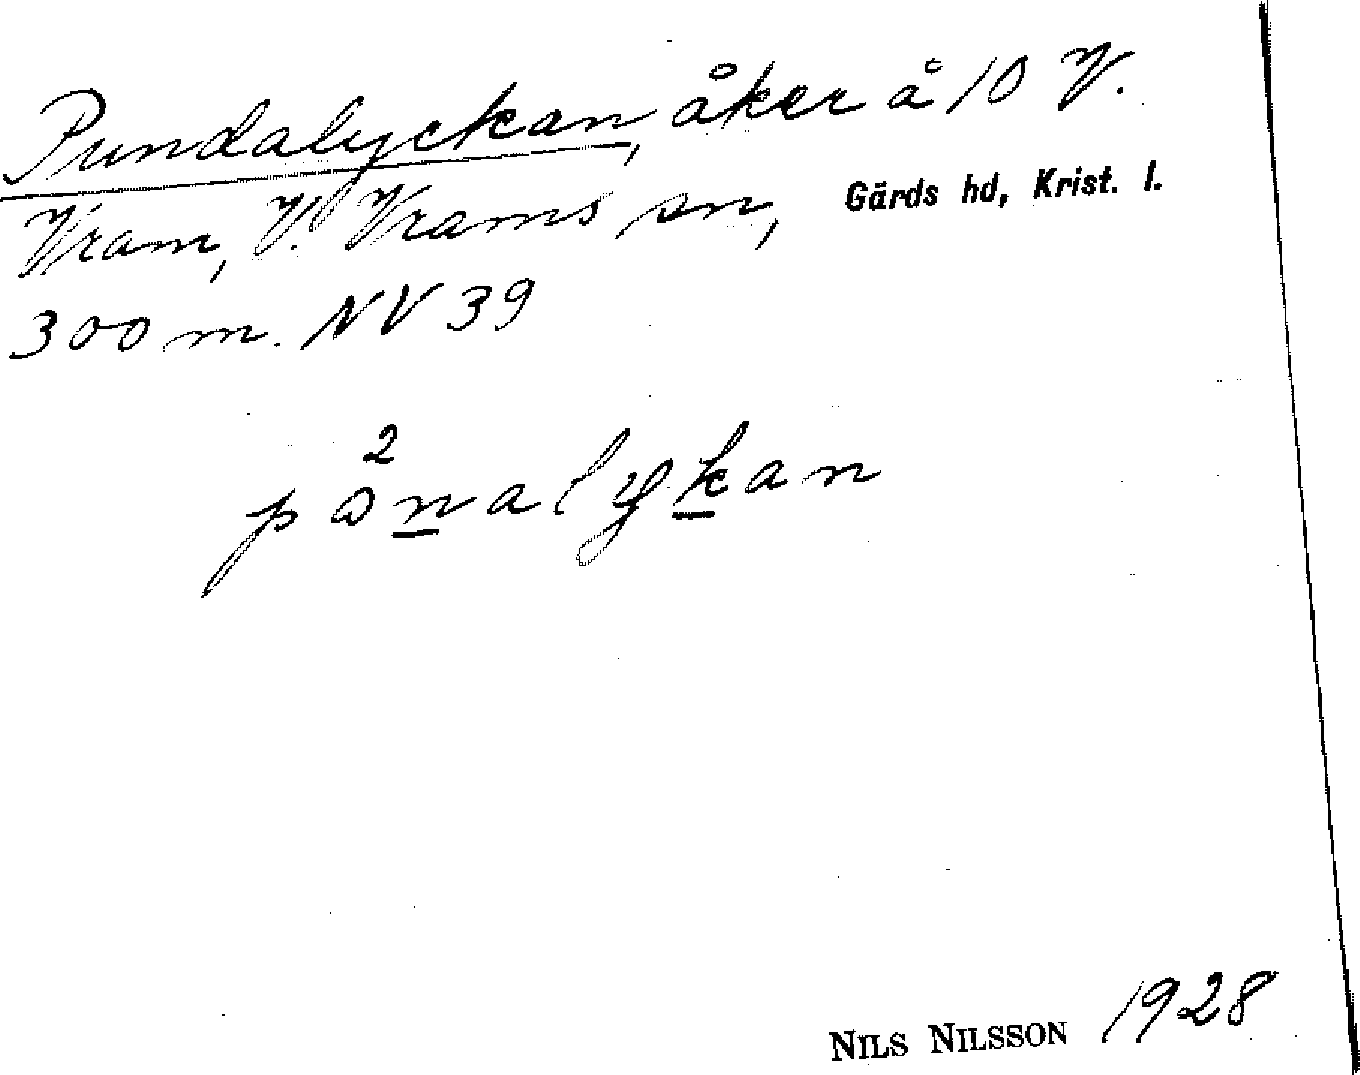 Pundalyckan, åker å 10 V.
Vram, V. Vrams sn, Gärds hd, Krist. l.
300 m. NV 39
2
pωnalykan
NILS NILSSON 1928